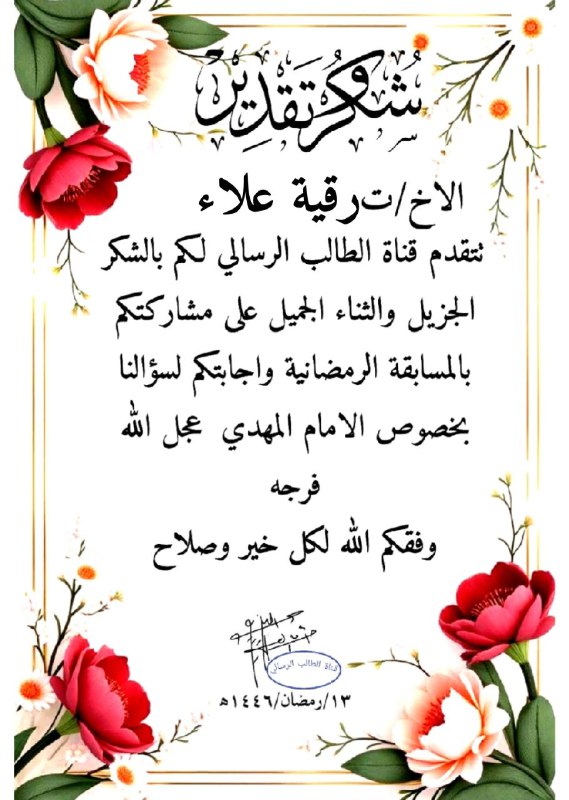 شكر وتقدير
الاخ/ت رقية علاء
تتقدم قناة الطالب الرسالي لكم بالشكر
الجزيل والثناء الجميل على مشاركتكم
بالمسابقة الرمضانية واجابتكم لسؤالنا
بخصوص الامام المهدي عجل الله
فرجه
وفقكم الله لكل خير وصلاح
قناة الطالب الرسالي
١٣/رمضان/١٤٤٦ه